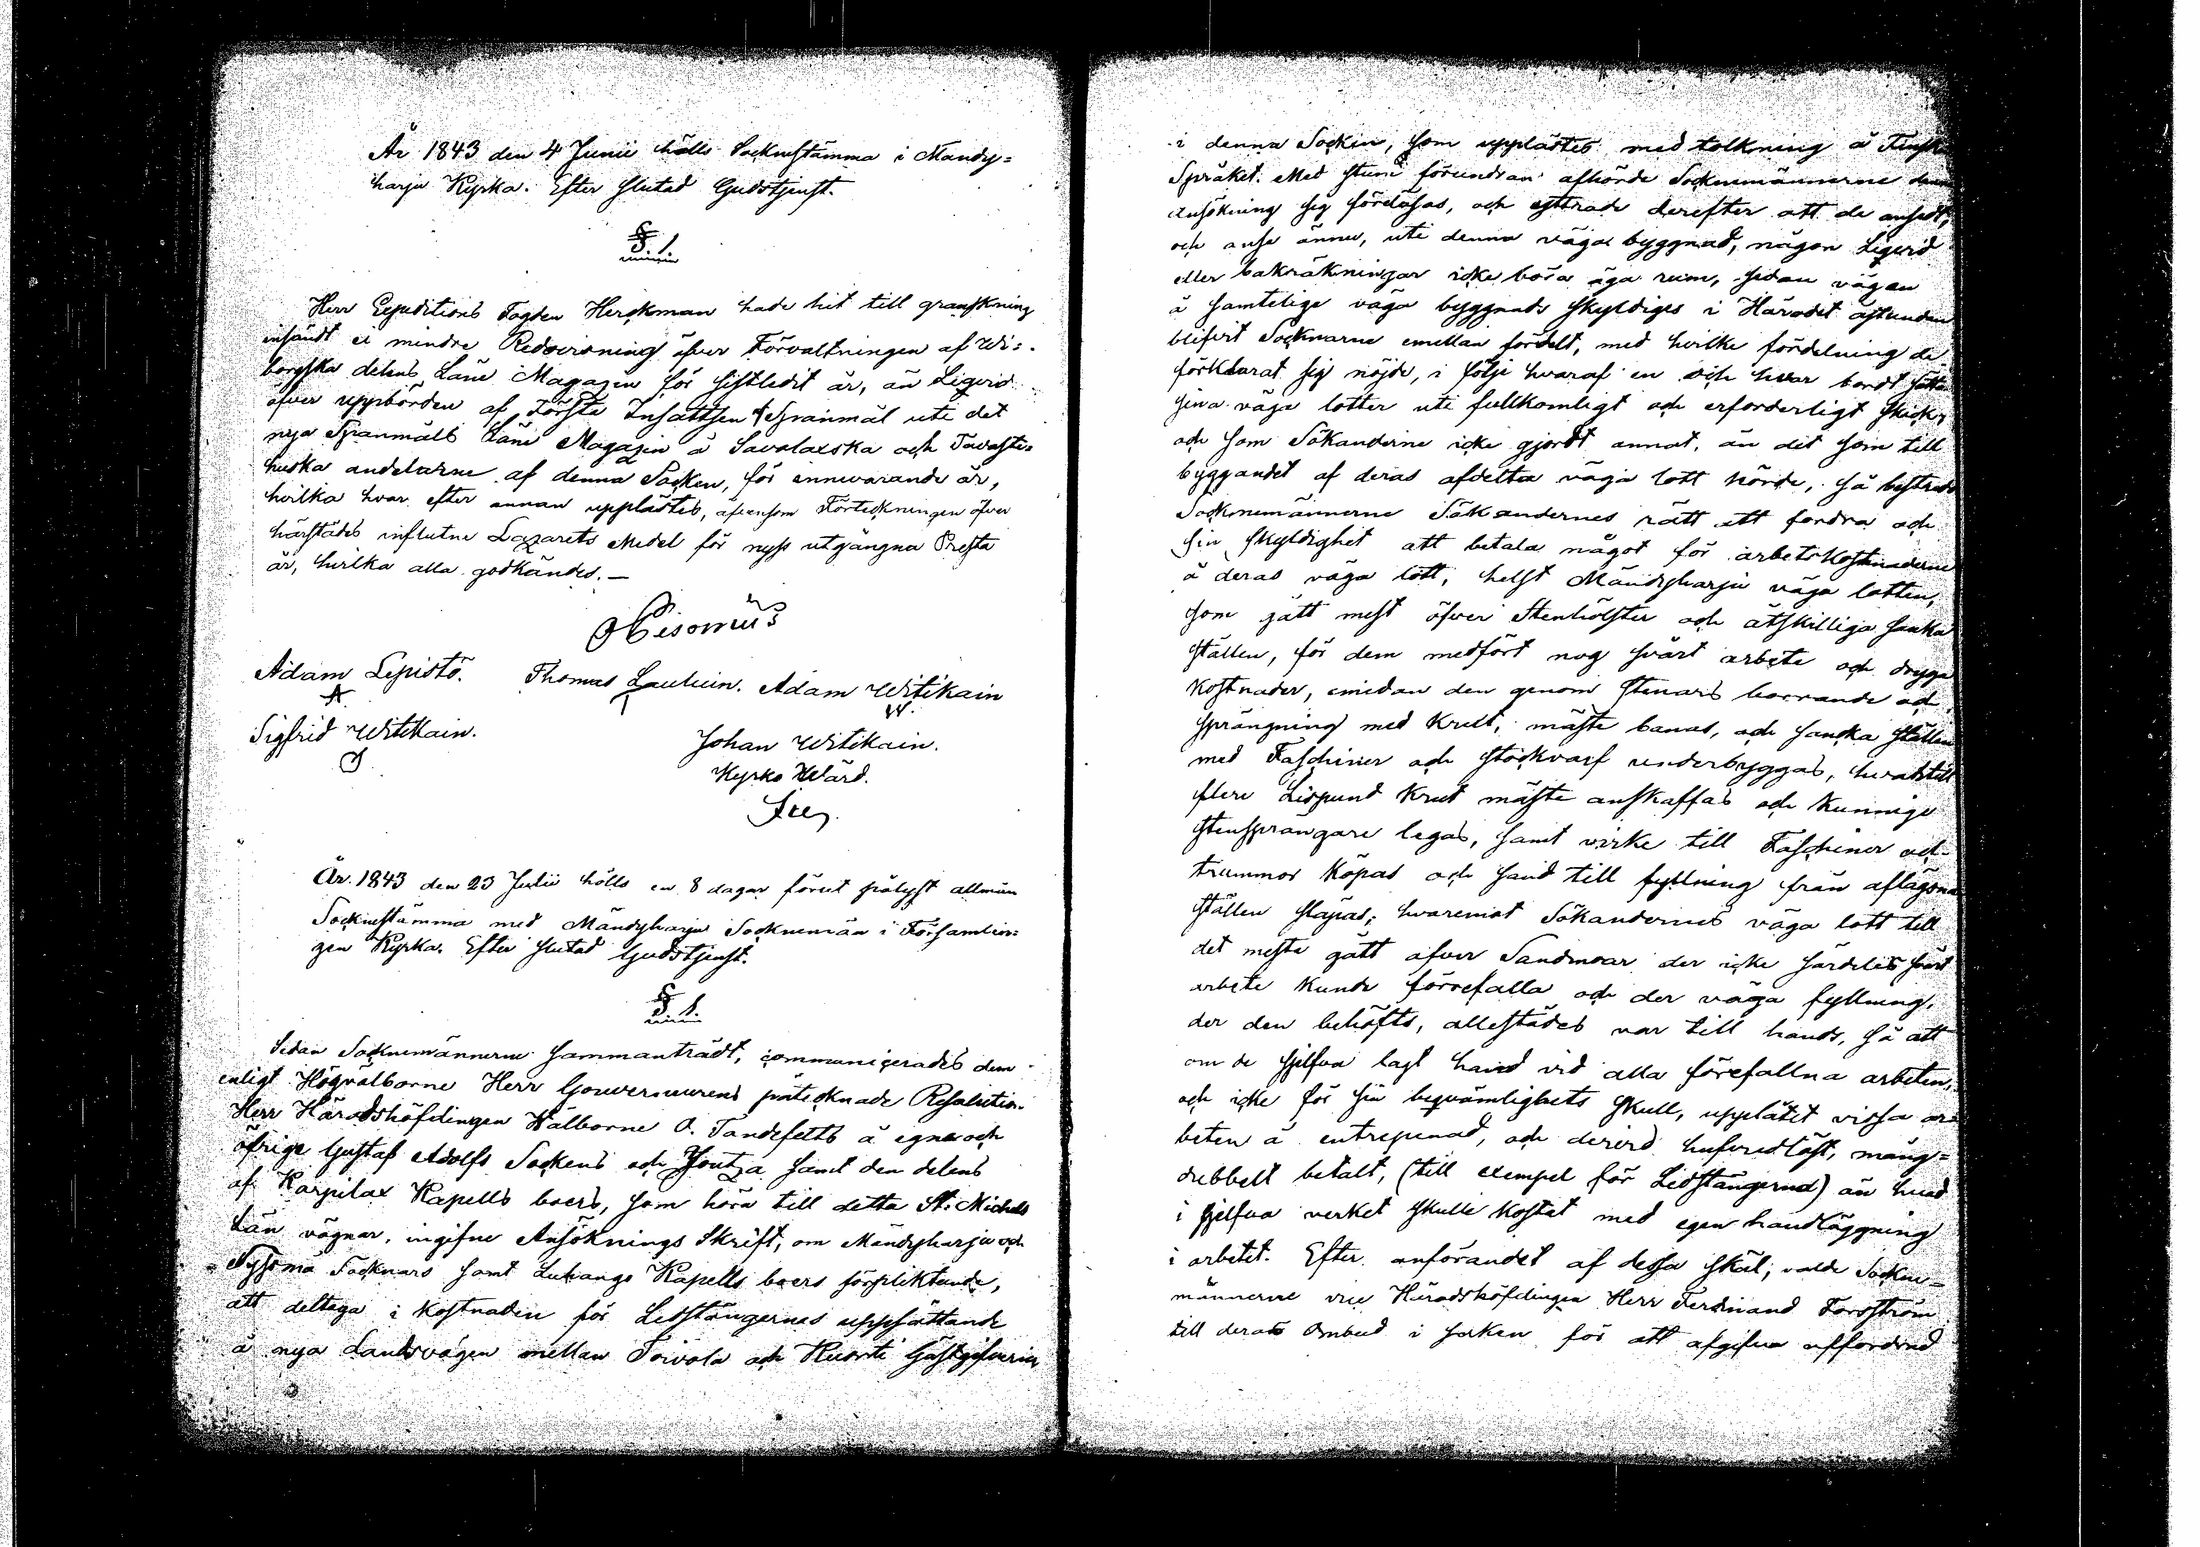 År 1843 den 4 Junii hölls Socknestämma i Mändy=
harju Kyrka. Efter slutad Gudstjenst.
§. 1.
Herr Expeditions Fogden Herckman hade hit till granskning
insändt ei mindre Redovisning öfver Förvaltningen af Wi=
borgska delens Låne Magazin för sistledit år, än Liqvid
öfver uppbörden af Första Insattsen Spanmål uti det
nya Spanmåls Låne Magazin å Savolaxska och Tavaste=
huska andelarne af denna Socken, för innevarande år,
hvilka hvar efter annan upplästes, äfvensom Förteckningen öfver
härstädes influtne Lazarets Medel för nyss utgångna Presta
år, hvilka alla godkändes.—
Adam Lepistö. Thomas Laulain. Adam Witikain
A T W.
Sigfrid Witikain. Johan Witikain.
Kyrko Wärd.
År 1843 den 23 Julii hölls en 8 dagar förut pålyst allmän
Socknestämma med Mändyharju Socknemän i Församlin=
gen Kyrka. Efter slutad Gudstjenst.
§. 1.
Sedan Socknemännerne sammanträdt, communicerades dem
enligt Högvälborne Herr Gouverneurens påtecknade Resolution
Herr Häradshöfdingen Wälborne O. Tandefelts å egna och
öfrige Gustaf Adolfs Sockens och Joutza samt den delens
af Karpilax Kapells boers, som höra till detta St: Michels
Län vägnar, ingifne Ansöknings Skrift, om Mändyharju och
Nysomä Socknars samt Luhango Kapells boers förpliktande,
att deltaga i kostnaden för Ledstängernas uppsättande
å nya Landsvägen mellan Toivola och Kuorti Gästgifverier
i denna Socken, som upplästes med tolkning å Finska
Språket. Med stum förundran afhörde Socknemännerne denna
ansökning sig föreläsas, och yttrade derefter att de ansedt,
och anse ännu, uti denna väga byggnad, någon Liqvid
eller bakräkningar icke böra äga rum, sedan vägen
å samtelige väga byggnads skyldiges i Häradet åstundan
blifvit Socknarne emellan fördelt, med hvilke fördelning de
förklarat sig nöjde, i följe hvaraf en och hvar bordt sätta
sina väga lotter uti fullkomligt och erforderligt skick,
och som Sökanderne icke gjordt annat, än det som till
byggandet af deras afdelta väga lott hörde, så bestredo
Socknemännerne Sökandernes rätt att fordra och
sin skyldighet att betala något för arbetskostnaderne
å deras väga lott, helst Mändyharju väga lotten,
som gått mest öfver Stenhölster och åtskilliga sanka
ställen, för dem medfört nog svårt arbete och dryga
kostnader, emedan den genom stenars borrande och
sprängning med krut, måste banas, och sanka ställen
med Faschiner och stockvarf underbyggas, hvartill
flere Lispund krut måste anskaffas och kunnige
stensprängare legas, samt virke till Faschiner och
trummor köpas och sand till fyllning från aflägsna
ställen släpas; hvaremot Sökandernes väga lott till
det mesta gått öfver Sandmoar der icke särdeles svårt
arbete kunde förrefalla och der väga fyllning,
der den behöfts, allestädes var till hands, så att
om de sjelfva lagt hand vid alla förefallna arbeten,
och icke för sin beqvämlighets skull, upplåtit vissa ar=
beten å entrepenad, och derved hufvudlöst, mång=
dubbelt betalt, (till exempel för Ledstängerna) än hvad
i sjelfva verket skulle kostat med egen handläggning
i arbetet. Efter anförandet af dessa skäl, valde Socken=
männerne vice Häradshöfdingen Herr Ferdinand Forsström
till deras Ombud i saken för att afgifva affordrad